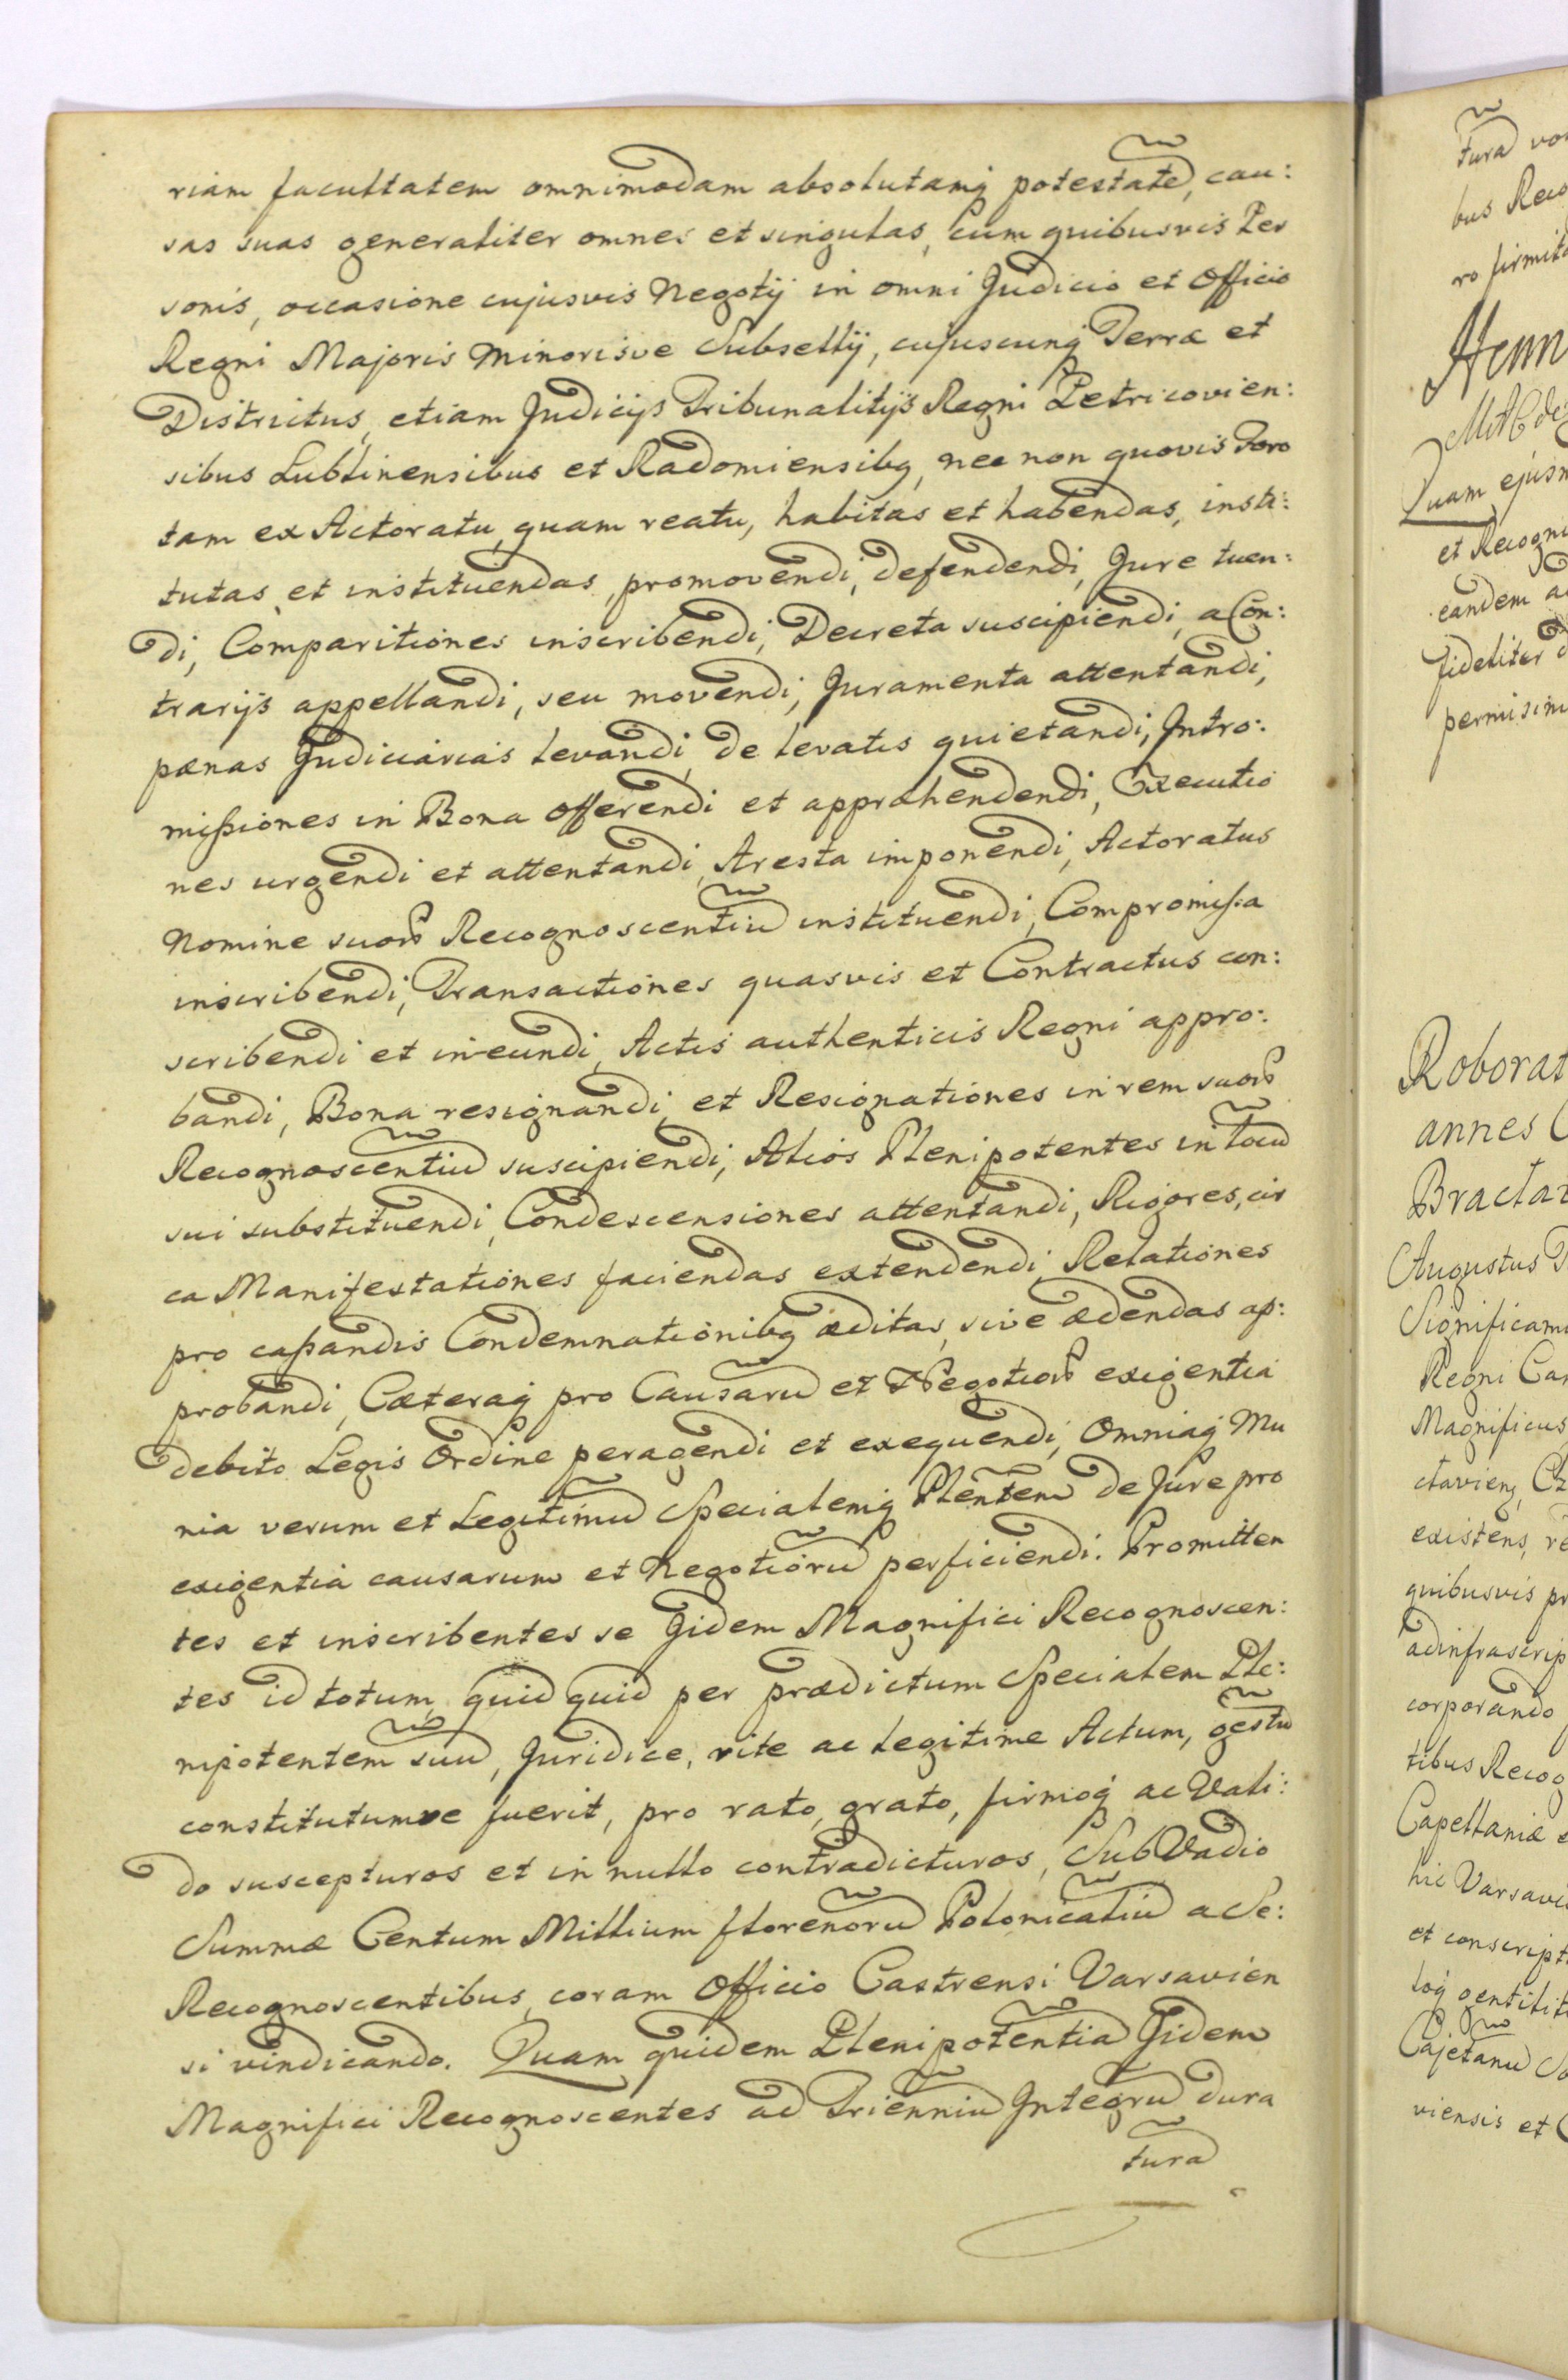 riam facultatem omnimodam absolutamq potestate, cau:
sas suas generaliter omnes et singulas, cum quibusvis Per
sonis, occasione cujusvis Negotij in omni Judicio et Officio
Regni Majoris Minorisve Subsellij, cujuscunq Terræ et
Districtus, etiam Judicijs Tribunalitijs Regni Petricovien:
sibus Lublinensibus et Radomiensibq, nec non quovis Foro
tam ex Actoratu quam reatu, habitas et habendas, insti:
tutas et instituendas, promovendi, defendendi, Jure tuen:
di, Comparitiones inscribendi, Decreta suscipiendi, a Con:
trarijs appellandi, seu movendi, Juramenta attentandi,
pænas Judiciarias levandi, de levatis quietandi, Intro:
missiones in Bona offerendi et appræhendendi, Executio
nes urgendi et attentandi, Aresta imponendi, Actoratus
Nomine suor Recognoscentiu instituendi, Compromissa
inscribendi, Transactiones quasvis et Contractus con:
scribendi et ineundi, Actis authenticis Regni appro:
bandi, Bona resignandi, et Resignationes in rem suor
Recognoscentiu suscipiendi, Alios Plenipotentes in locu
sui substituendi, Condescensiones attentandi, Rigores, cir
ca Manifestationes faciendas extendendi, Relationes
pro cassandis Condemnationibq æditas, sive ædendas ap:
probandi, Cæteraq pro Causaru et Negotior exigentia
debito Legis Ordine peragendi et exequendi, Omniaq Mu
nia verum et Legitimu Specialemq Plentem de Jure pro
exigentia causarum et Negotioru perficiendi. Promitten
tes et inscribentes se Iidem Magnifici Recognoscen:
tes id totum, quid quid per prædictum Specialem Ple:
nipotentem suu, Juridice, rite ac legitime Actum, gestu
constitutumve fuerit, pro rato, grato, firmoq ac Vali:
do suscepturos et in nullo contradicturos, Sub Vadio
Summæ Centum Millium florenoru Polonicaliu a Se:
Recognoscentibus, coram Officio Castrensi Varsavien
si vindicando. Quam quidem Plenipotentia Iidem
Magnifici Recognoscentes ad Trienniu Integru dura
tura
tura
bus
Quam
et
eandem
fideliter
annes
Augustus
Regni
Magnificus
existens,
quibusvis
corporando
tibus
Capellaniæ
hic
et
Cajetanu
viensis et